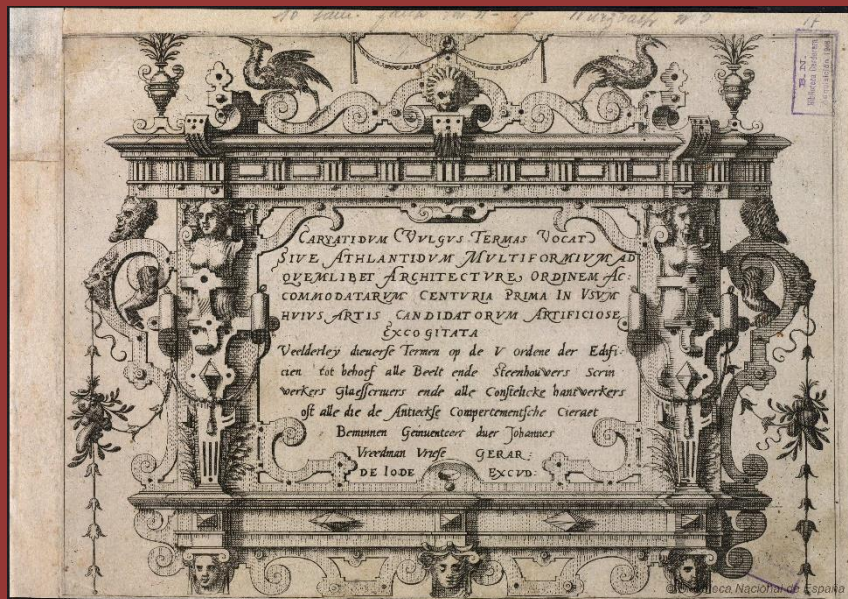 B. N.
CARYATIDVM (VVLGVS TERMAS VOCAT)
SIVE ATHLANTIDVM MVLTIFORMIVM AD
QVEMLIBET ARCHITECTVRE ORDINEM AC:
COMMODATARVM CENTVRIA PRIMA IN VSVM
HVIVS ARTIS CANDIDATORVM ARTIFICIOSE
EXCOGITATA
Veelderleÿ dieuerse Termen op de V ordene der Edifi:
cien tot behoef alle Beelt ende Steenhouwers Scrin
werkers Glaesscriuers ende alle Constelicke hantwerkers
oft alle die de Antieckse Compertementsche Cieraet
Beminnen Geinuenteert duer Johannes
Vreedman Vriese GERAR:
DE IODE EXCVD:
Biblioteca Nacional de España